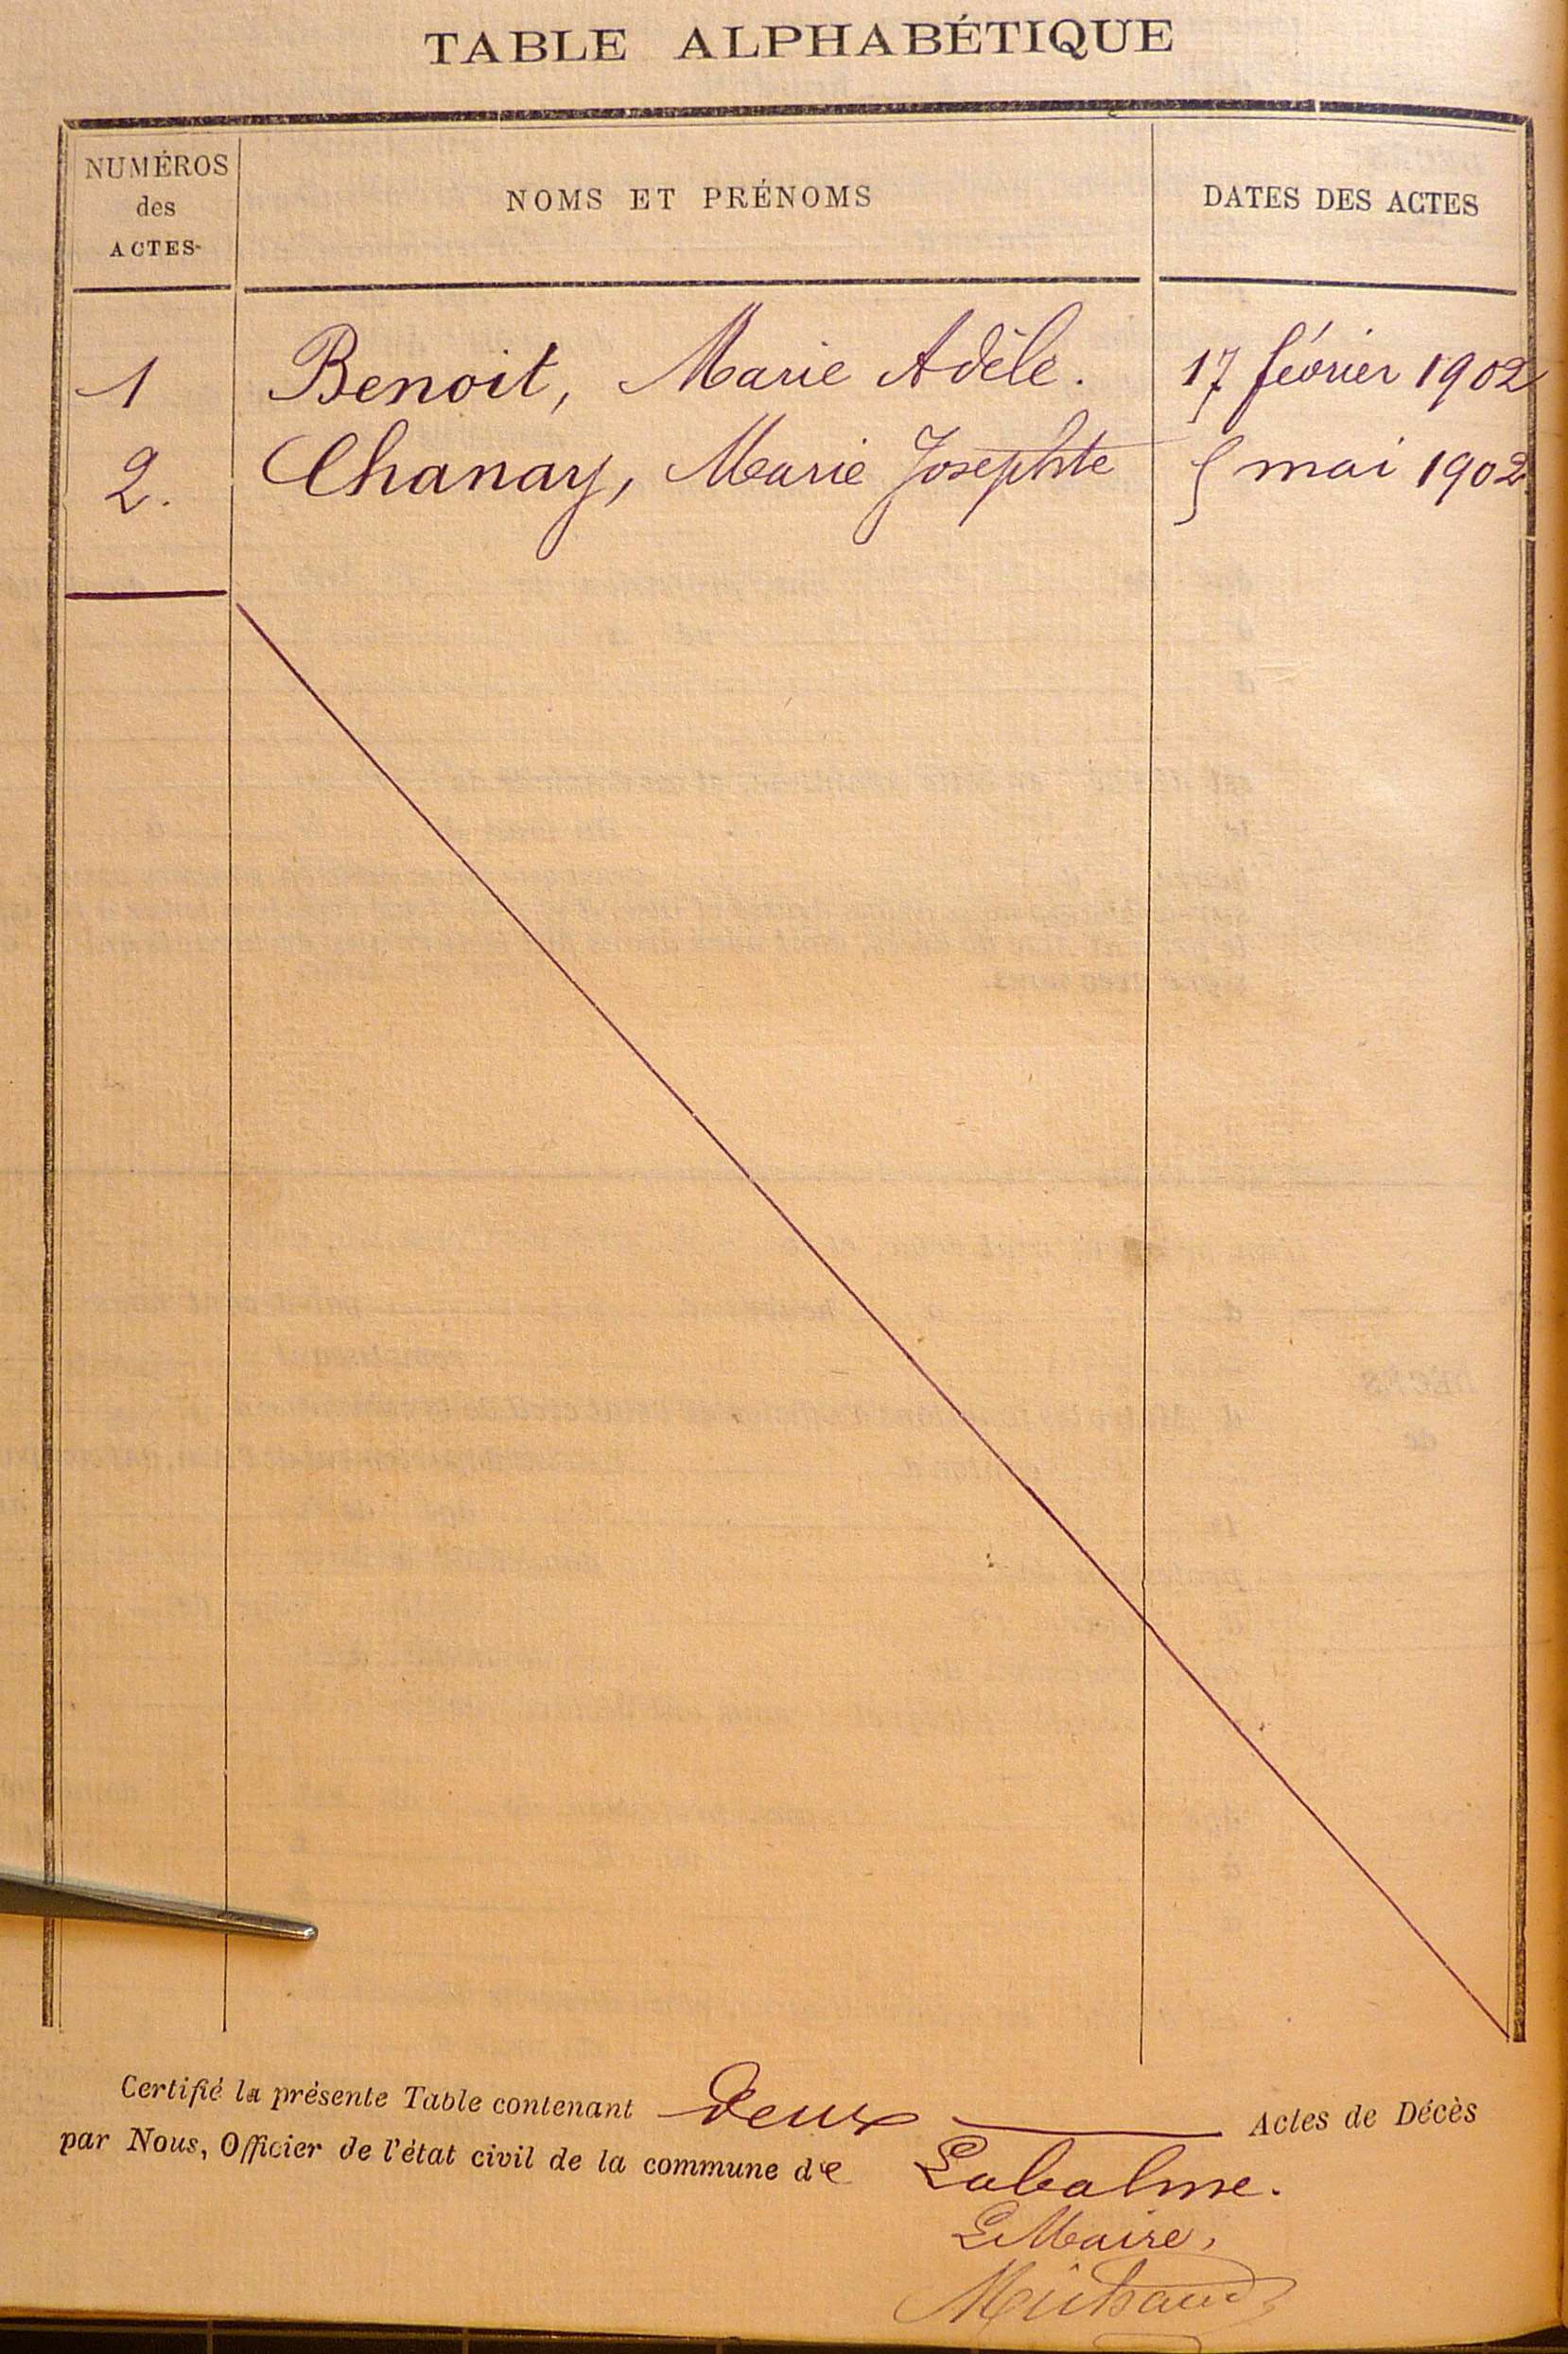 TABLE ALPHABÉTIQUE
NUMÉROS
des
ACTES
NOMS ET PRÉNOMS
DATES DES ACTES
1 Benoit, Marie Adèle. 17 février 1902
2. Chanay, Marie Josephte 5 mai 1902
Certifié la présente Table contenant deux Actes de Décès
par Nous, Officier de l'état civil de la commune de Labalme.
Le Maire,